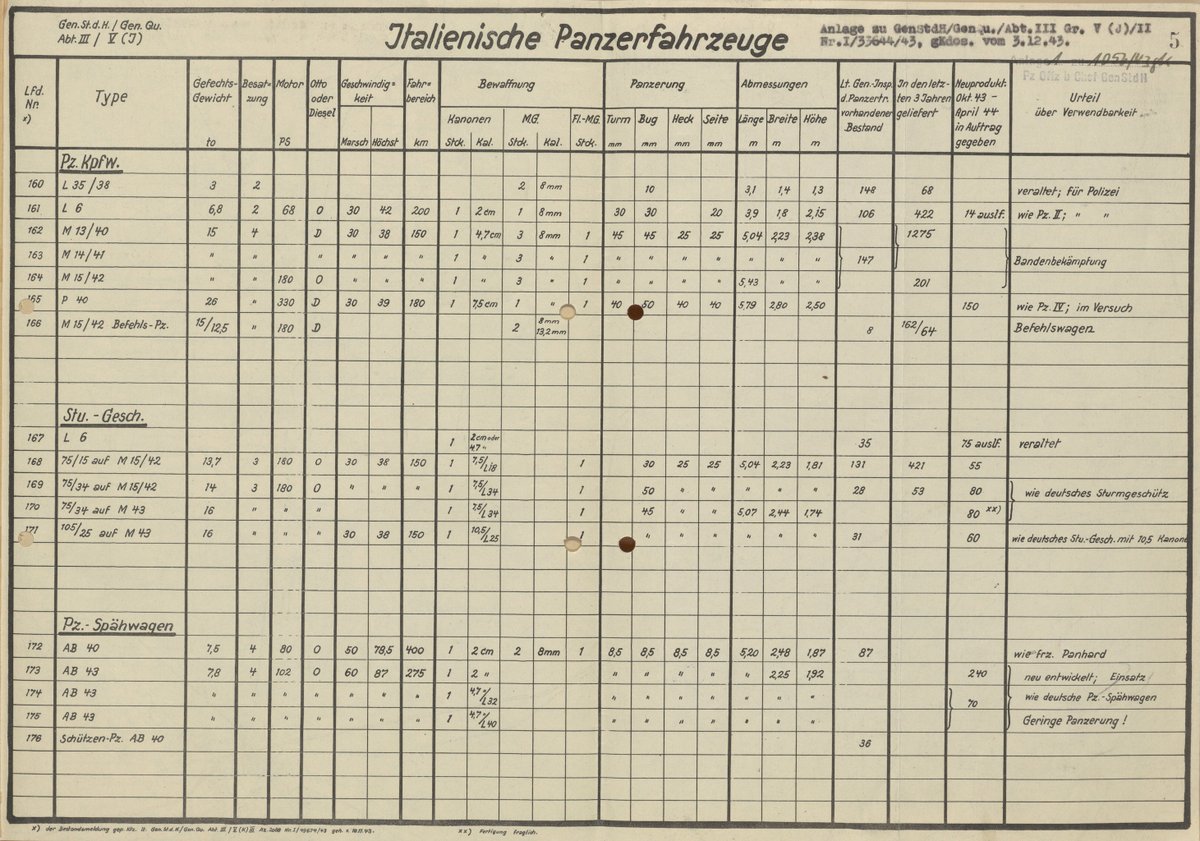 Gen.St.d.H./Gen.Qu.
Abt.III/ V (J)
Italienische Panzerfahrzeuge
Anlage zu GenStdH/Genqu./Abt.III Gr. V (J)/II
Nr.I/33644/43, gKdos. vom 3.12.43.
5
Pz Offz b Chef GenStdH
Lfd. Nr. x) Type Gefechts-Gewicht Besat-zung Motor Otto oder Diesel Geschwindig=keit Fahr=bereich Bewaffnung Panzerung Abmessungen Lt. Gen.-Insp. d.Panzertr. vorhandener Bestand In den letz-ten 3 Jahren geliefert Neuprodukt. Okt. 43 – April 44 in Auftrag gegeben Urteil über Verwendbarkeit
Kanonen M.G. Fl.-MG. Turm Bug Heck Seite Länge Breite Höhe
to PS Marsch Höchst km Stck. Kal. Stck. Kal. Stck. mm mm mm mm m m m
Pz. Kpfw.
160 L 35/38 3 2 2 8mm 10 3,1 1,4 1,3 148 68 veraltet; für Polizei
161 L 6 6,8 2 68 O 30 42 200 1 2 cm 1 8mm 30 30 20 3,9 1,8 2,15 106 422 14 auslf. wie Pz. II; " "
162 M 13/40 15 4 D 30 38 150 1 4,7 cm 3 8mm 1 45 45 25 25 5,04 2,23 2,38 1275
163 M 14/41 " " " " " " 1 " 3 " 1 " " " " " " " 147 Bandenbekämpfung
164 M 15/42 " " 180 O " " " 1 " 3 " 1 " " " " 5,43 " " 201
165 P 40 26 " 330 D 30 39 180 1 7,5 cm 1 " 1 40 50 40 40 5,79 2,80 2,50 150 wie Pz. IV; im Versuch
166 M 15/42 Befehls-Pz. 15/12,5 " 180 D 2 8mm 13,2 mm 8 162/64 Befehlswagen
Stu. - Gesch.
167 L 6 1 2 cm oder 4,7 " 35 75 auslf. veraltet
168 75/15 auf M 15/42 13,7 3 180 O 30 38 150 1 7,5/L18 1 30 25 25 5,04 2,23 1,81 131 421 55
169 75/34 auf M 15/42 14 3 180 O " " " 1 7,5/L34 1 50 " " " " " 28 53 80 wie deutsches Sturmgeschütz
170 75/34 auf M 43 16 " " " 1 7,5/L34 45 " " 5,07 2,44 1,74 80 xx)
171 105/25 auf M 43 16 " " " 30 38 150 1 10,5/L25 1 " " " " " " 31 60 wie deutsches Stu.-Gesch. mit 10,5 Kanone
Pz. - Spähwagen
172 AB 40 7,5 4 80 O 50 78,5 400 1 2 cm 2 8mm 1 8,5 8,5 8,5 8,5 5,20 2,48 1,87 87 wie frz. Panhard
173 AB 43 7,8 4 102 O 60 87 275 1 2 " " " " " " 2,25 1,92 240 neu entwickelt; Einsatz
174 AB 43 " " " " " " " 1 4,7 "/L32 " " " " " " " 70 wie deutsche Pz.-Spähwagen
175 AB 43 " " " " " " " 1 4,7 "/L40 " " " " " " " Geringe Panzerung !
176 Schützen-Pz. AB 40 36
xx) Fertigung fraglich.